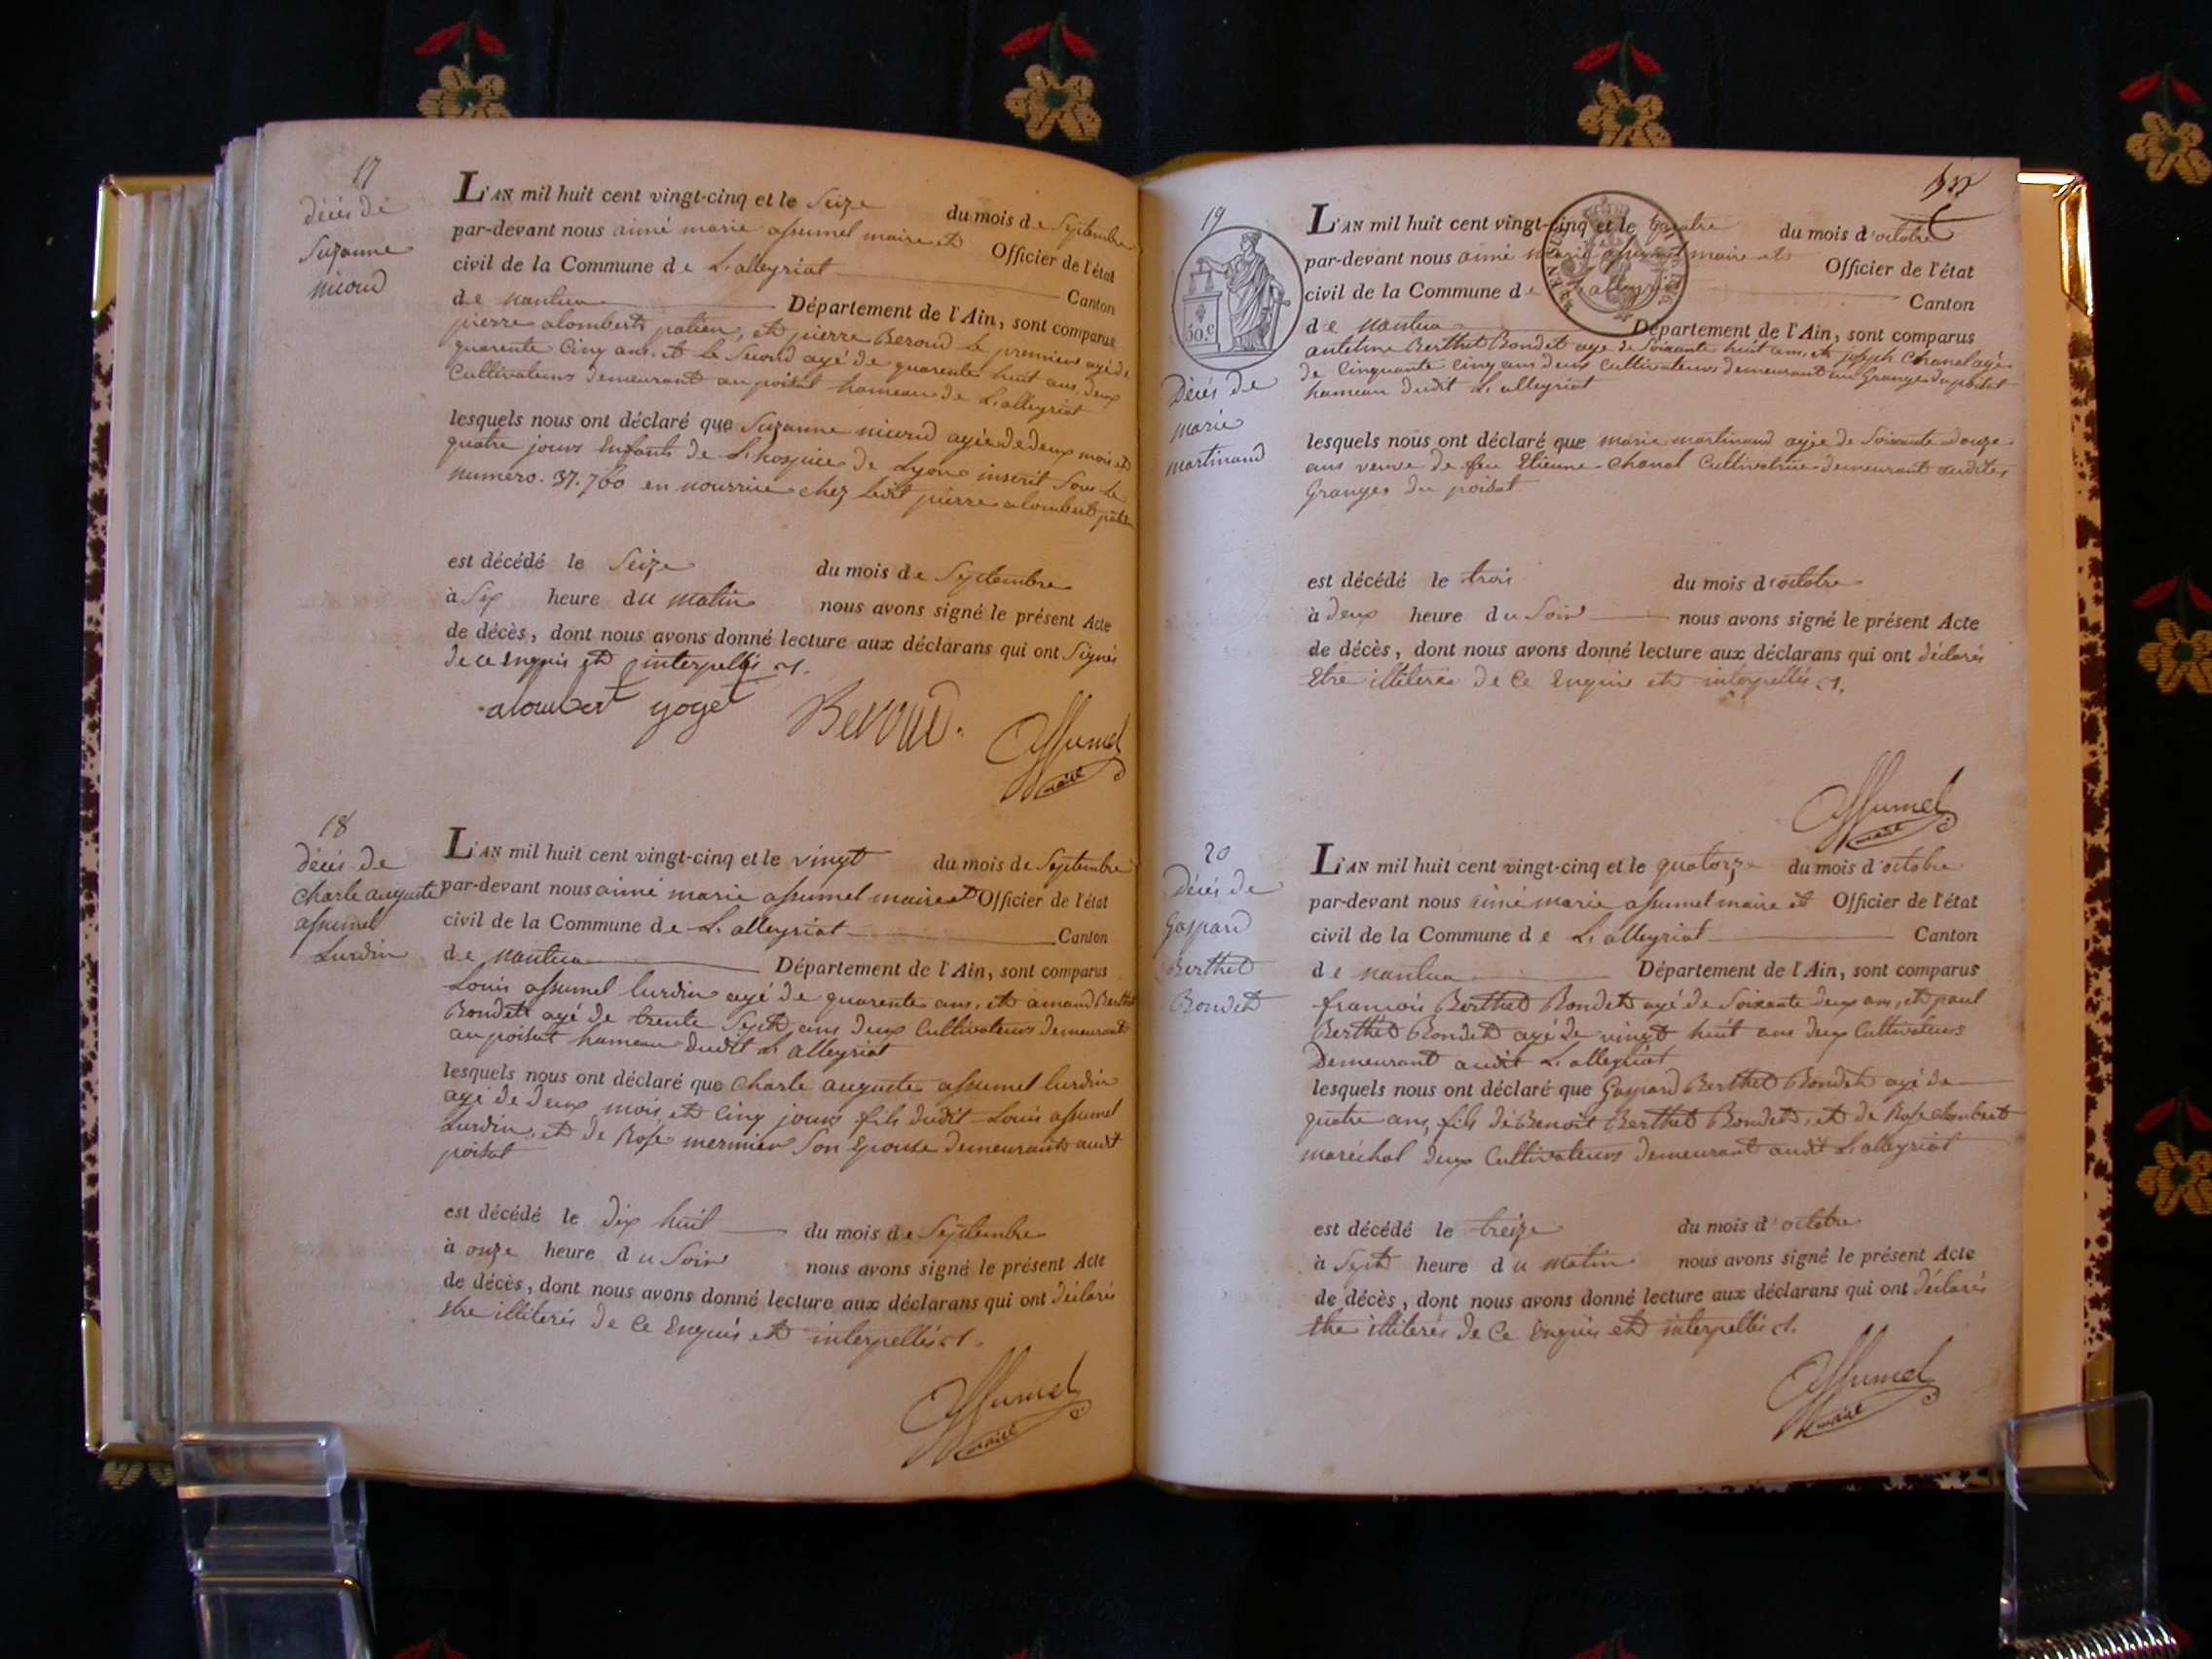 17
décès de
Suzanne
nicoud
L'AN mil huit cent vingt-cinq et le Seize du mois de Septembre
par-devant nous aimé marie assumel maire et Officier de l'état
civil de la Commune de L'alleyriat Canton
de nantua Département de l'Ain, sont comparus
pierre alombert, et pierre Beroud le premier agé de
quarente cinq ans, et le Second agé de quarente huit ans, deux
Cultivateurs demeurant au poisat hameau de L'alleyriat
lesquels nous ont déclaré que Suzanne nicoud agée de deux mois et
quatre jours Enfants de L'hospice de Lyon inscrit Sous le
numero. 37.760 en nourrice chez ledit pierre alombert
est décédé le Seize du mois de Septembre
à Six heure du matin nous avons signé le présent Acte
de décès, dont nous avons donné lecture aux déclarans qui ont Signés
de ce Enquis et interpellés
alombert goyet Beroud. Assumel
maire
18
décès de
Charle auguste
assumel
Lurdin
L'AN mil huit cent vingt-cinq et le vingt du mois de Septembre
par-devant nous aimé marie assumel maire et Officier de l'état
civil de la Commune de L'alleyriat Canton
de nantua Département de l'Ain, sont comparus
Louis assumel lurdin agé de quarente ans, et amand Berthet
Bondet agé de trente Sept ans deux Cultivateurs demeurant
au poisat hameau dudit L'alleyriat
lesquels nous ont déclaré que Charle auguste assumel lurdin
agé de deux mois et Cinq jours fils dudit Louis assumel
Lurdin, et de Rose mermier Son Epouse demeurants audit
poisat
est décédé le dix huit du mois de Septembre
à onze heure du Soir nous avons signé le présent Acte
de décès, dont nous avons donné lecture aux déclarans qui ont déclarés
Etre illiterés de Ce Enquis et interpellés
Assumel
maire
19
50.c
Décès de
marie
martinand
L'AN mil huit cent vingt-cinq et le quatre du mois d'octobre
par-devant nous aimé marie assumel maire et Officier de l'état
civil de la Commune de L'alleyriat Canton
de nantua Département de l'Ain, sont comparus
antelme Berthet Bondet agé de Soixante huit ans, et joseph Chanal agé
de Cinquante cinq ans deux Cultivateurs demeurant au Granges du poisat
hameau dudit L'alleyriat
lesquels nous ont déclaré que marie martinand agée de Soixante douze
ans veuve de feu Etienne Chanal Cultivatrice demeurant audites
Granges du poisat
est décédé le trois du mois d'octobre
à deux heure du Soir nous avons signé le présent Acte
de décès, dont nous avons donné lecture aux déclarans qui ont déclarés
Etre illiterés de Ce Enquis et interpellés
Assumel
maire
20
Décès de
Gaspard
Berthet
Bondet
L'AN mil huit cent vingt-cinq et le quatorze du mois d'octobre
par-devant nous aimé marie assumel maire et Officier de l'état
civil de la Commune de L'alleyriat Canton
de nantua Département de l'Ain, sont comparus
francois Berthet Bondet agé de Soixante deux ans, et paul
Berthet Bondet agé de vingt huit ans deux Cultivateurs
Demeurant audit L'alleyriat
lesquels nous ont déclaré que Gaspard Berthet Bondet agé de
quatre ans, fils de Benoit Berthet Bondet, et de Rose alombert
maréchal deux Cultivateurs demeurant audit L'alleyriat
est décédé le treize du mois d'octobre
à Sept heure du matin nous avons signé le présent Acte
de décès, dont nous avons donné lecture aux déclarans qui ont déclarés
Etre illiterés de Ce Enquis et interpellés
Assumel
maire